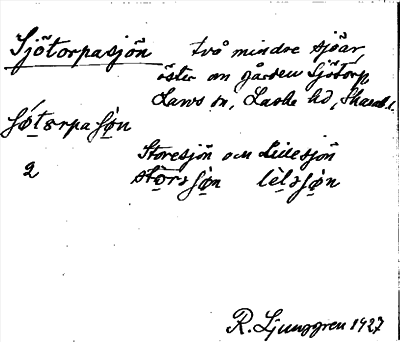 Sjötorpasjön två mindre sjöar
öster om gården Sjötorp,
Laws sn, Laske hd, Skarab. l.
ʃø̀tɛrpaʃø̀n
2
Storesjön och Lillesjön
stòrəʃø̀n lèləʃø̀n
R. Ljunggren 1927